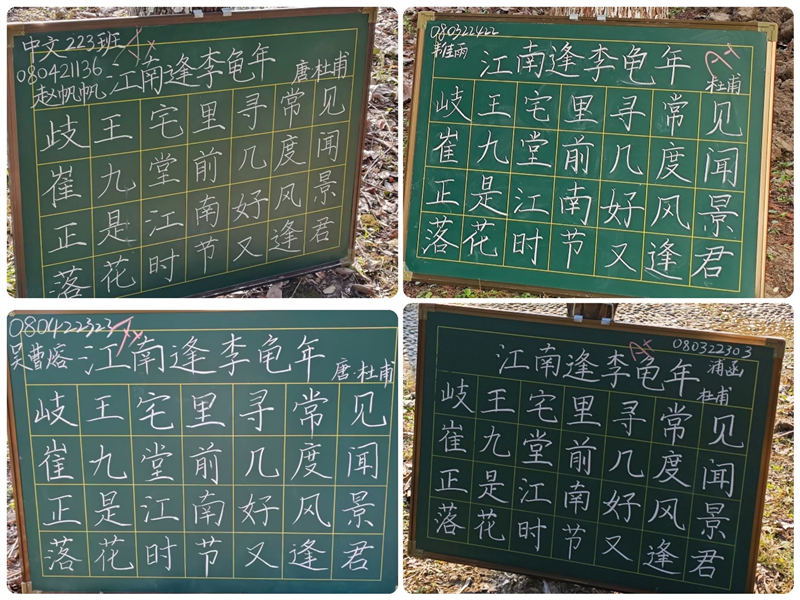 中文223班
080421136
赵帆帆
江南逢李龟年
唐·杜甫
岐王宅里寻常见
崔九堂前几度闻
正是江南好风景
落花时节又逢君
080322422
江南逢李龟年
杜甫
岐王宅里寻常见
崔九堂前几度闻
正是江南好风景
落花时节又逢君
080422323
吴曹熔
江南逢李龟年
唐·杜甫
岐王宅里寻常见
崔九堂前几度闻
正是江南好风景
落花时节又逢君
080322303
浦函
江南逢李龟年
杜甫
岐王宅里寻常见
崔九堂前几度闻
正是江南好风景
落花时节又逢君